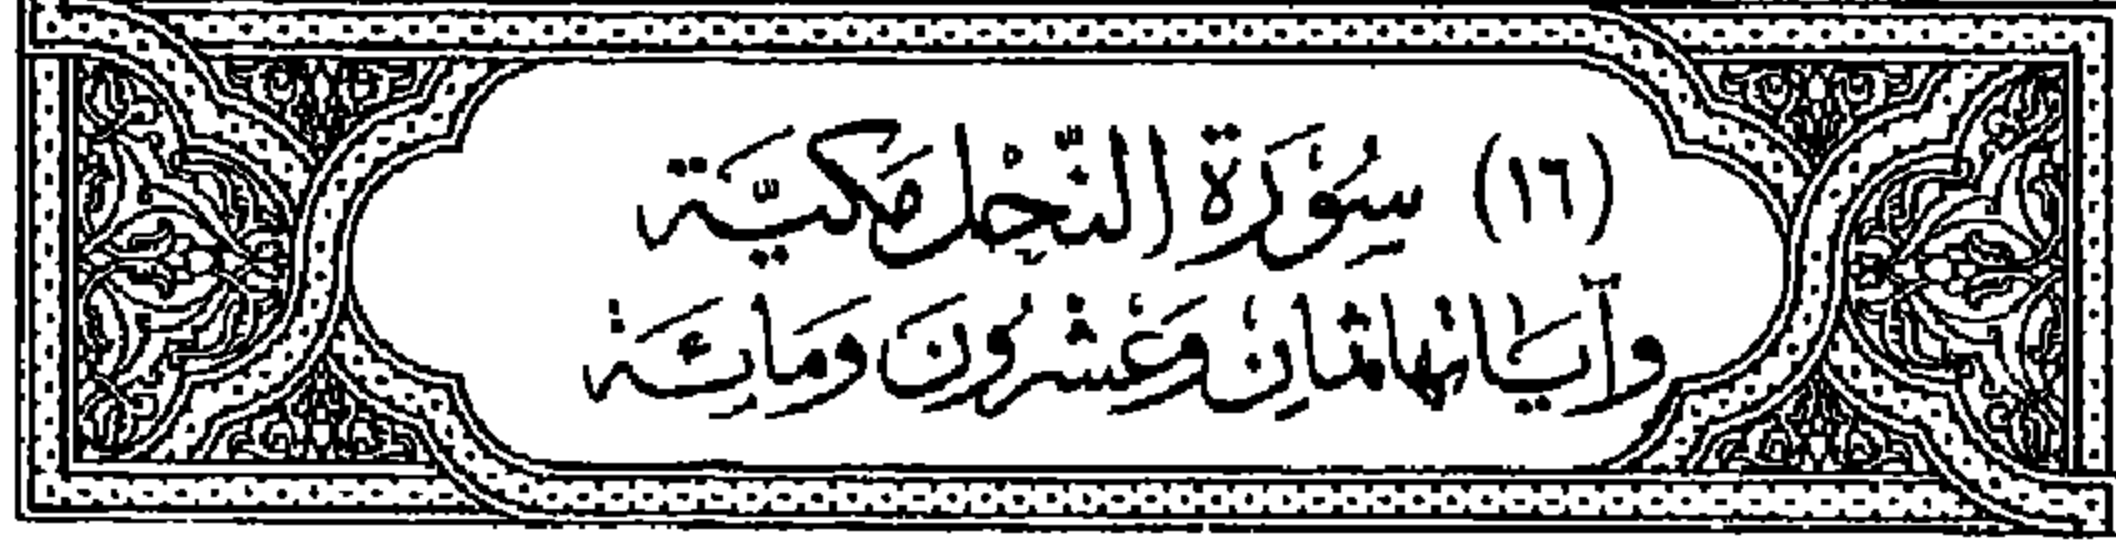 (١٦) سُوْرَةِ النَّحْلِ مَكيَّة
وآيَاتها ثمَانِ وَعَشرُونَ وَمَائِة